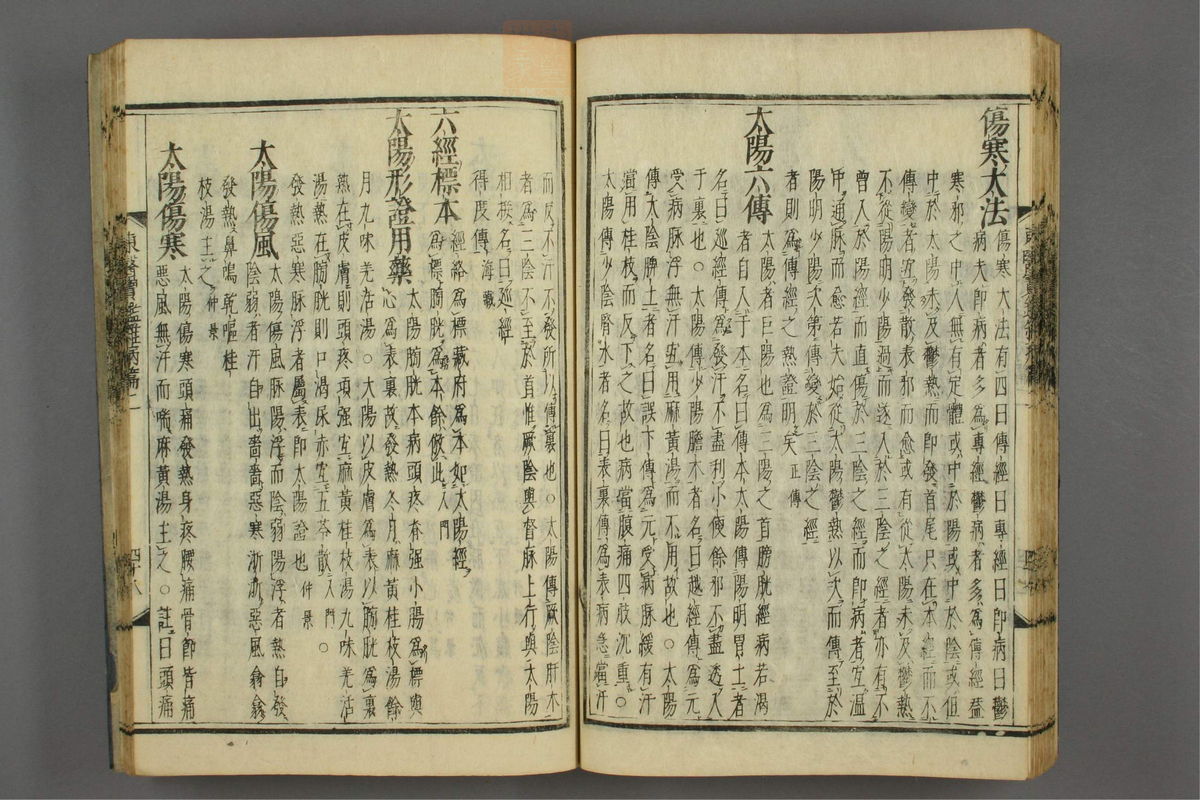 傷寒大法 傷寒大法有四曰傳經曰專經曰即病曰鬱
病夫即病者多為專經鬱病者多為傳經蓋
寒邪之中人無有定體或中於陽或中於陰或但
中於太陽未及鬱熱而即發首尾只在本經而不
傳變者宜發散表邪而愈或有從太陽未及鬱熱
不從陽明少陽過而遂入於三陰之經者亦有不
曾入於陽經而直傷於三陰之經而即病者宜溫
中通脉而愈若夫始從太陽鬱熱以次而傳至於
陽明少陽次第傳變於三陰之經
者則為傳經之熱證明矣 正傳
太陽六傳 太陽者巨陽也為三陽之首膀胱經病若渴
者自入于本名曰傳本太陽傳陽明胃土者
名曰巡經傳為發汗不盡利小便餘邪不盡透入
于裏也○太陽傳少陽膽木者名曰越經傳為元
受病脉浮無汗宜用麻黃湯而不用故也○太陽
傳太陰脾土者名曰誤下傳為元受病脉緩有汗
當用桂枝而反下之故也病當腹痛四肢沉重○
太陽傳少陰腎水者名曰表裏傳為表病急當汗
而反不汗不發所以傳裏也○太陽傳厥陰肝木
者為三陰不至於首惟厥陰與督脉上行與太陽
相接名曰巡經
得度傳 海藏
六經標本 經絡為標藏府為本如太陽經
為標膀胱為本餘倣此 入門
太陽形證用藥 太陽膀胱本病頭疼脊强小腸為標與
心為表裏故發熱冬月麻黃桂枝湯餘
月九味羌活湯○太陽以皮膚為表以膀胱為裏
熱在皮膚則頭疼項强宜麻黃桂枝湯九味羌活
湯熱在膀胱則口渴尿赤宜五苓散 入門 ○
發熱惡寒脉浮者屬表即太陽證也 仲景
太陽傷風 太陽傷風脉陽浮而陰弱陽浮者熱自發
陰弱者汗自出嗇嗇惡寒淅淅惡風翕翕
發熱鼻鳴乾嘔桂
枝湯主之 仲景
太陽傷寒 太陽傷寒頭痛發熱身疼腰痛骨節皆痛
惡風無汗而喘麻黃湯主之○註曰頭痛
東醫寶鑑雜病篇二
四十八